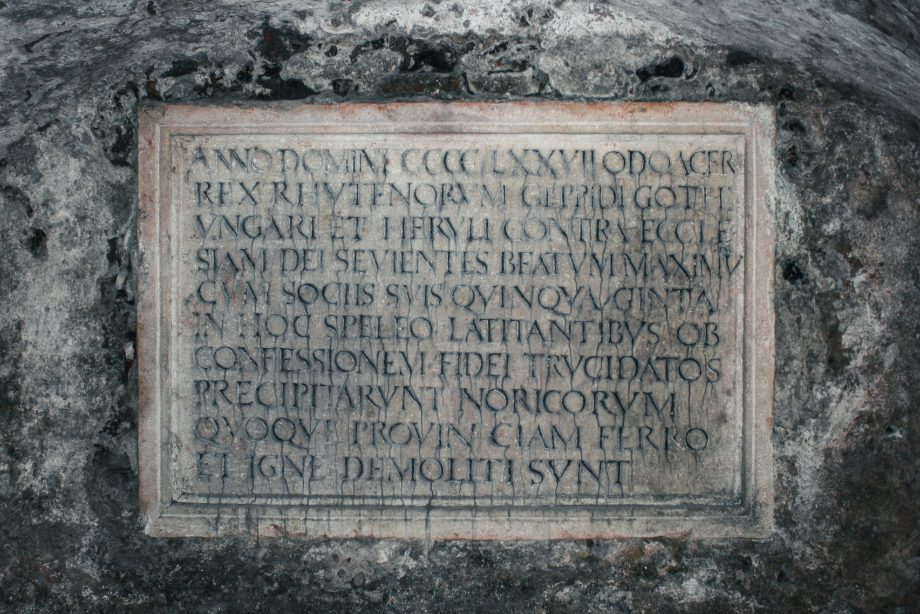 ANNO DOMINI CCCC LXXVII ODOACER
REX RHVTENORVM GEPPIDI GOTHI
VNGARI ET HERVLI CONTRA ECCLE
SIAM DEI SEVIENTES BEATVM MAXIMV
CVM SOCIIS SVIS QVINQVAGINTA
IN HOC SPELEO LATITANTIBVS OB
CONFESSIONEM FIDEI TRVCIDATOS
PRECIPITARVNT NORICORVM
QVOQVE PROVIN CIAM FERRO
ET IGNE DEMOLITI SVNT